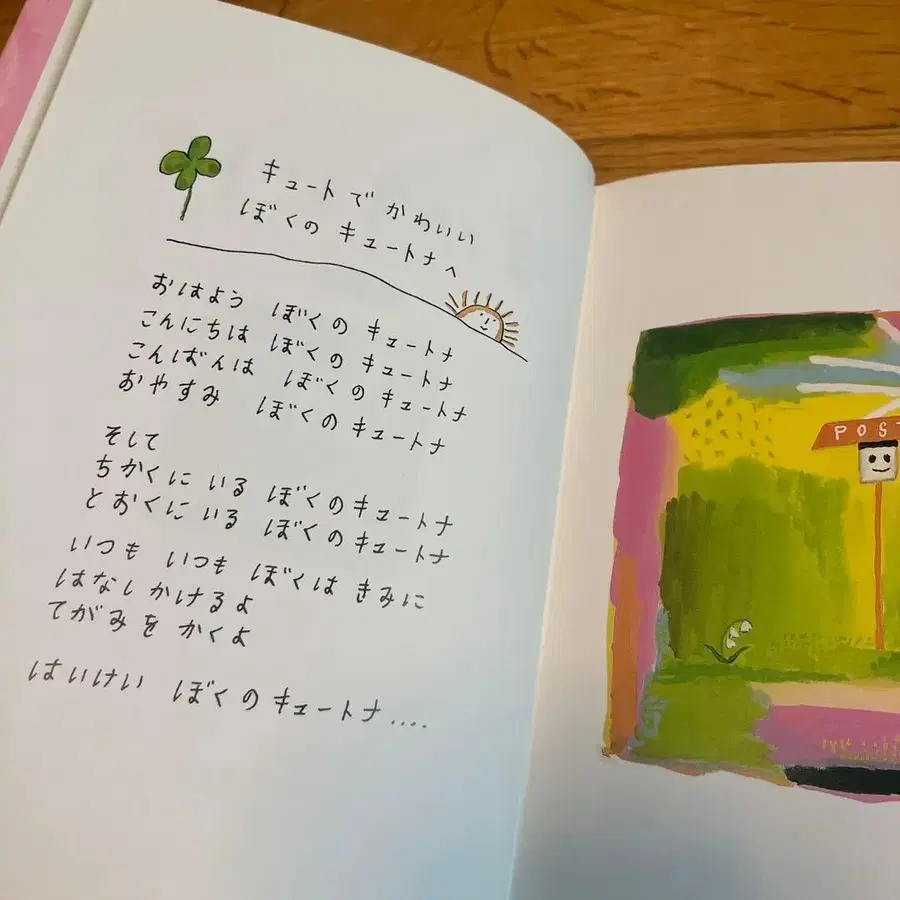 キュートで かわいい
ぼくの キュートナへ
おはよう ぼくの キュートナ
こんにちは ぼくの キュートナ
こんばんは ぼくの キュートナ
おやすみ ぼくの キュートナ
そして
ちかくに いる ぼくのキュートナ
とおくに いる ぼくのキュートナ
いつも いつも ぼくは きみに
はなしかけるよ
てがみを かくよ
はいけい ぼくのキュートナ....
POST